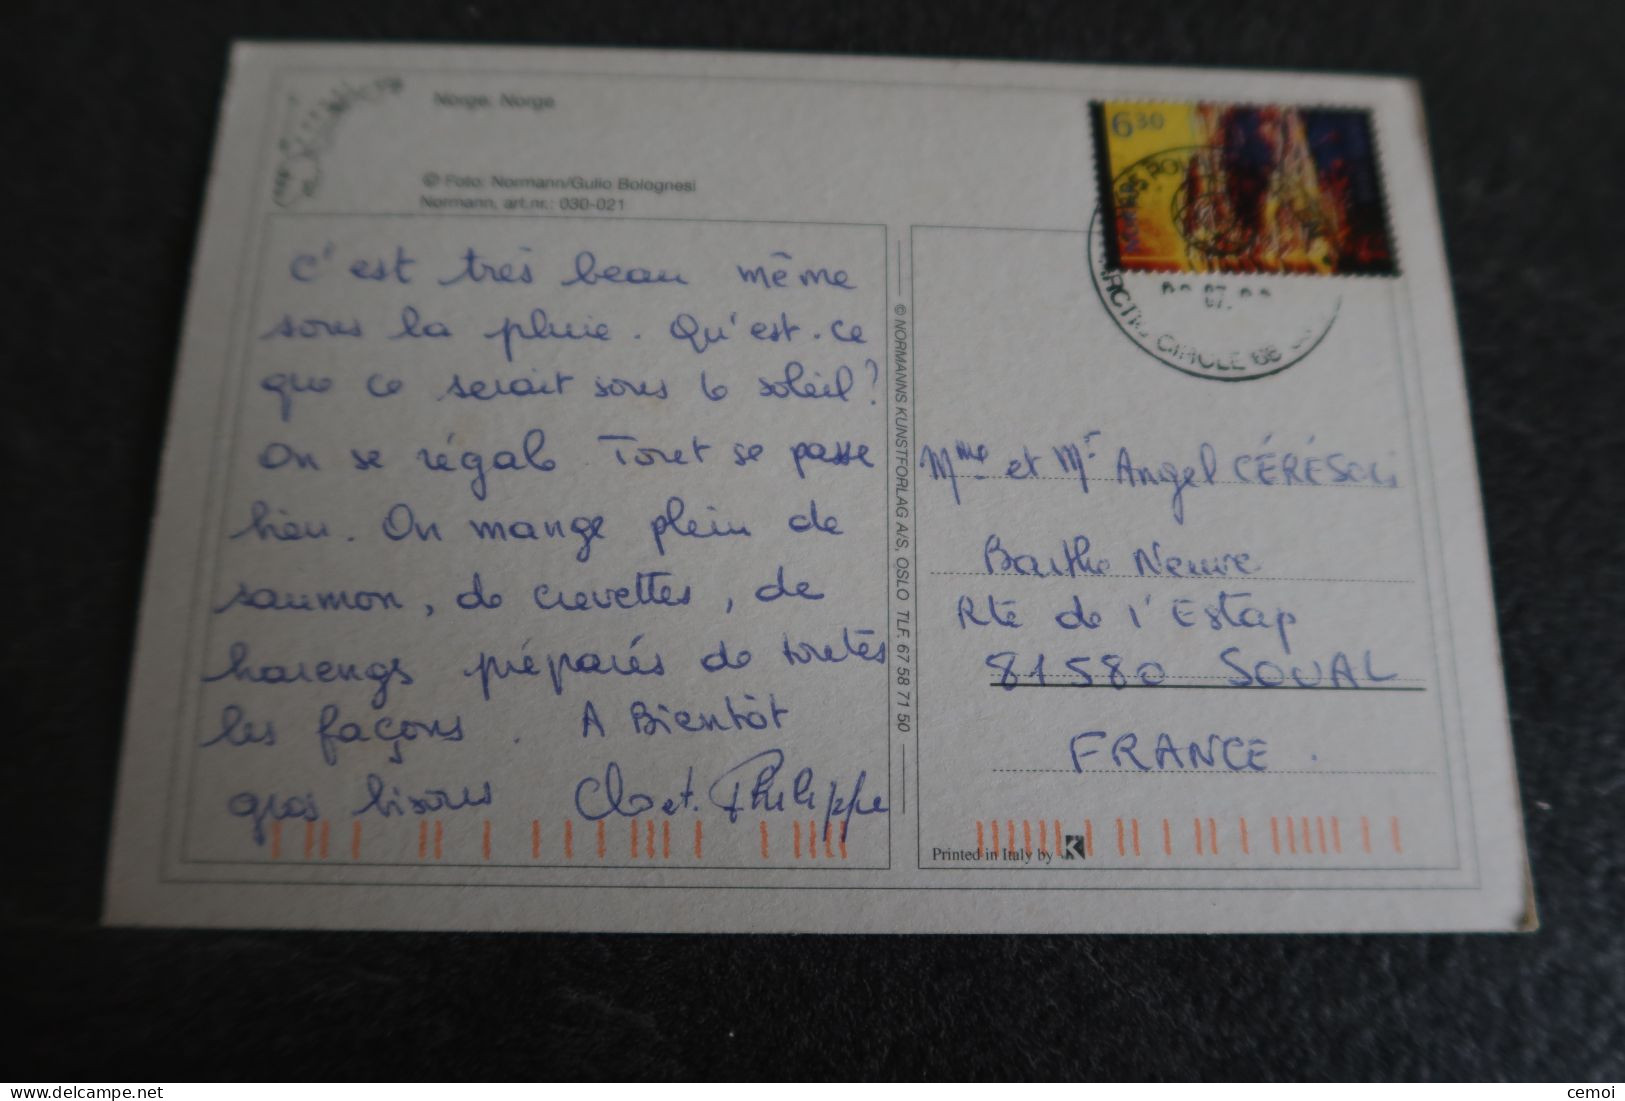 Norge. Norge
© Foto: Normann/Gulio Bolognesi
Normann, art.nr.: 030-021
C'est très beau même
sous la pluie. Qu'est-ce
que ce serait sous le soleil?
On se régale Tout se passe
bien. On mange plein de
saumon, de crevettes, de
harengs préparés de toutes
les façons. A Bientôt
gros bisous Clo et Philippe
© NORMANNS KUNSTFORLAG A/S, OSLO TLF. 67 58 71 50
6 30
ARCTIC CIRCLE 66
07.
Mme et Mr Angel CÉRÉSOLI
Barthe Neuve
Rte de l'Estap
81580 SOUAL
FRANCE.
Printed in Italy by K
cemoi